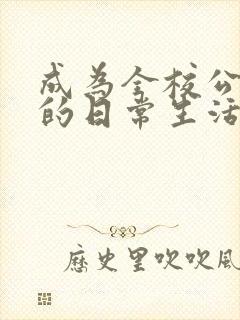 成為全校公
的日常生活
歷史里吹吹風